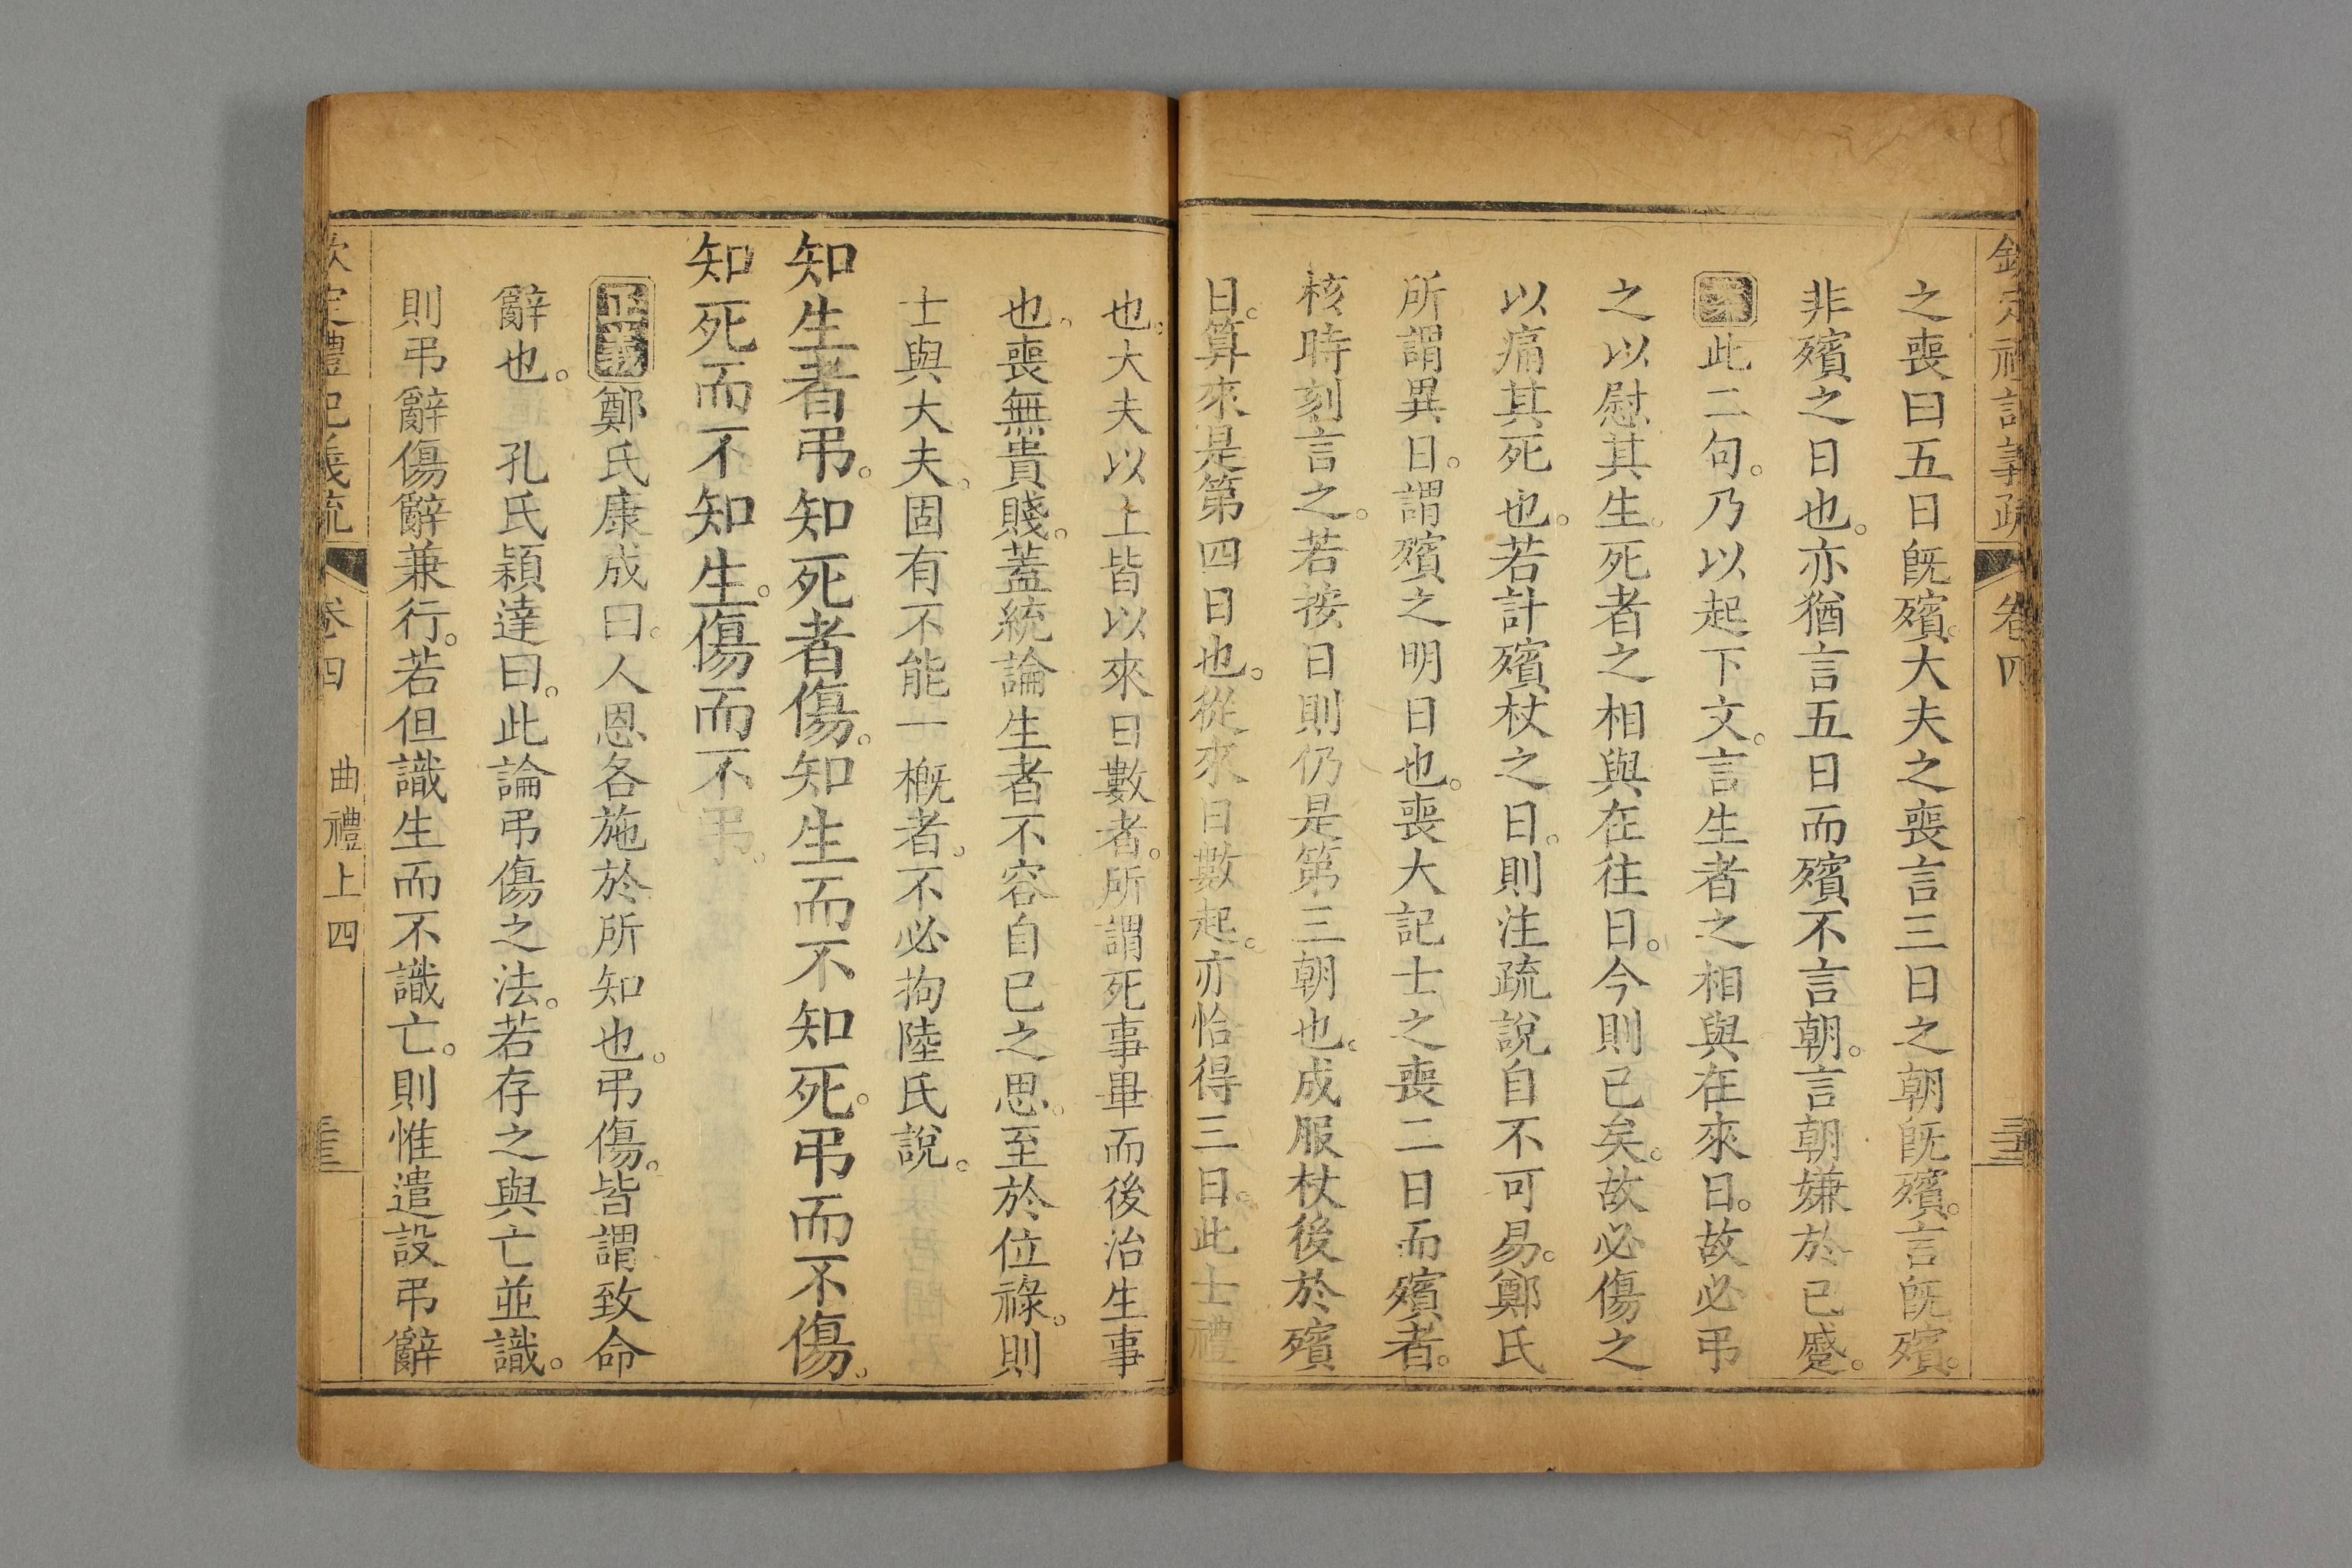 欽定禮記義疏 卷四
之喪曰五日旣殯。大夫之喪言三日之朝旣殯。言旣殯。
非殯之日也。亦猶言五日而殯不言朝。言朝嫌於已蹙。
案此二句。乃以起下文。言生者之相與在來日。故必弔
之以慰其生。死者之相與在往日。今則已矣。故必傷之
以痛其死也。若計殯杖之日。則注疏說自不可易。鄭氏
所謂異日。謂殯之明日也。喪大記士之喪二日而殯者。
核時刻言之。若按日則仍是第三朝也。成服杖後於殯
日。算來是第四日也。從來日數起。亦恰得三日。此士禮
也。大夫以上皆以來日數者。所謂死事畢而後治生事
也。喪無貴賤。蓋統論生者不容自已之思。至於位祿。則
士與大夫。固有不能一槪者。不必拘陸氏說。
知生者弔。知死者傷。知生而不知死。弔而不傷。
知死而不知生。傷而不弔。
正義鄭氏康成曰。人恩各施於所知也。弔傷。皆謂致命
辭也。 孔氏穎達曰。此論弔傷之法。若存之與亡並識。
則弔辭傷辭兼行。若但識生而不識亡。則惟遣設弔辭
欽定禮記義疏 卷四 曲禮上四